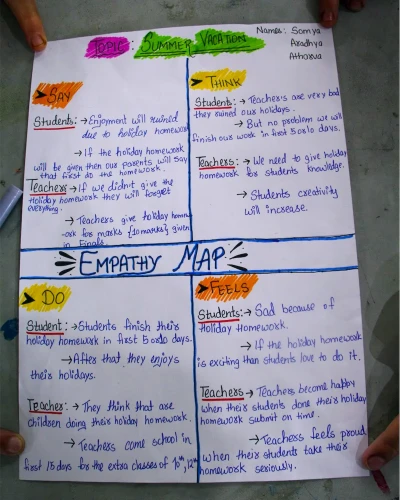 Topic: Summer Vacation
Names: Somya
Aradhya
Atharva
➤ Say
Students: → Enjoyment will ruined
due to holiday homework
→ If the holiday homework
will be given then our parents will say
that first do the homework.
Teachers → If we didn't give the
holiday homework they will forget
everything.
→ Teachers give holiday homew
-ork for marks {10marks} given
in Finals.
➤ Think
Students: → Teachers are very bad
they ruined our holidays.
→ But no problem we will
finish our work in first 5 or 10 days.
Teachers: → We need to give holiday
homework for students knowledge.
→ Students creativity
will increase.
Empathy Map
➤ Do
Student: → Students finish their
holiday homework in first 5 or 10 days.
→ After that they enjoys
their holidays.
Teacher: → They think that are
children doing their holiday homework.
→ Teachers come school in
first 15 days for the extra classes of 10th, 12th
➤ Feels
Students: → Sad because of
Holiday Homework.
→ If the holiday homework
is exciting than students love to do it.
Teachers → Teachers become happy
when their students done their holiday
homework submit on time.
→ Teachers feels proud
when their students take their
homework seriously.